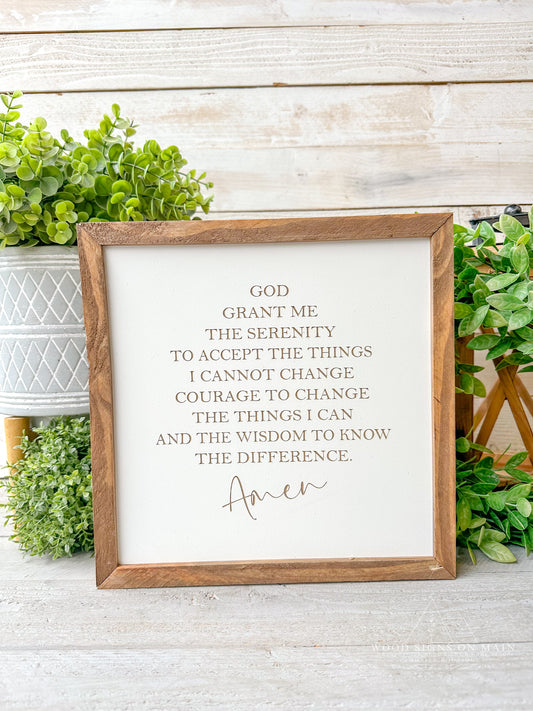 GOD
GRANT ME
THE SERENITY
TO ACCEPT THE THINGS
I CANNOT CHANGE
COURAGE TO CHANGE
THE THINGS I CAN
AND THE WISDOM TO KNOW
THE DIFFERENCE.
Amen
WOOD SIGNS ON MAIN